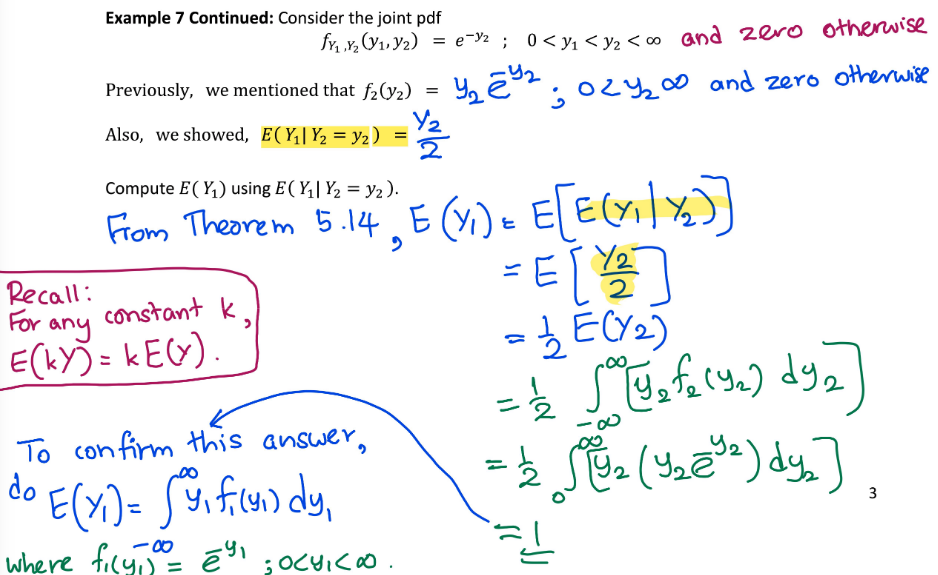 Example 7 Continued: Consider the joint pdf
f_{Y₁,Y₂}(y₁, y₂) = e^{−y₂} ; 0 < y₁ < y₂ < ∞ and zero otherwise
Previously, we mentioned that f₂(y₂) = y₂ e^{-y₂} ; 0<y₂ ∞ and zero otherwise
Also, we showed, E( Y₁| Y₂ = y₂ ) = y₂/2
Compute E( Y₁) using E( Y₁| Y₂ = y₂ ).
From Theorem 5.14, E(Y₁) = E[E(Y₁|Y₂)]
= E[Y₂/2]
= 1/2 E(Y₂)
= 1/2 ∫_{-∞}^{∞} [y₂ f₂(y₂) dy₂]
= 1/2 ∫_{0}^{∞} [y₂ (y₂ e^{-y₂}) dy₂]
= 1
Recall:
For any constant k,
E(kY) = k E(Y).
To confirm this answer,
do E(Y₁) = ∫_{-∞}^{∞} y₁ f₁(y₁) dy₁
where f₁(y₁) = e^{-y₁} ; 0<y₁<∞.
3